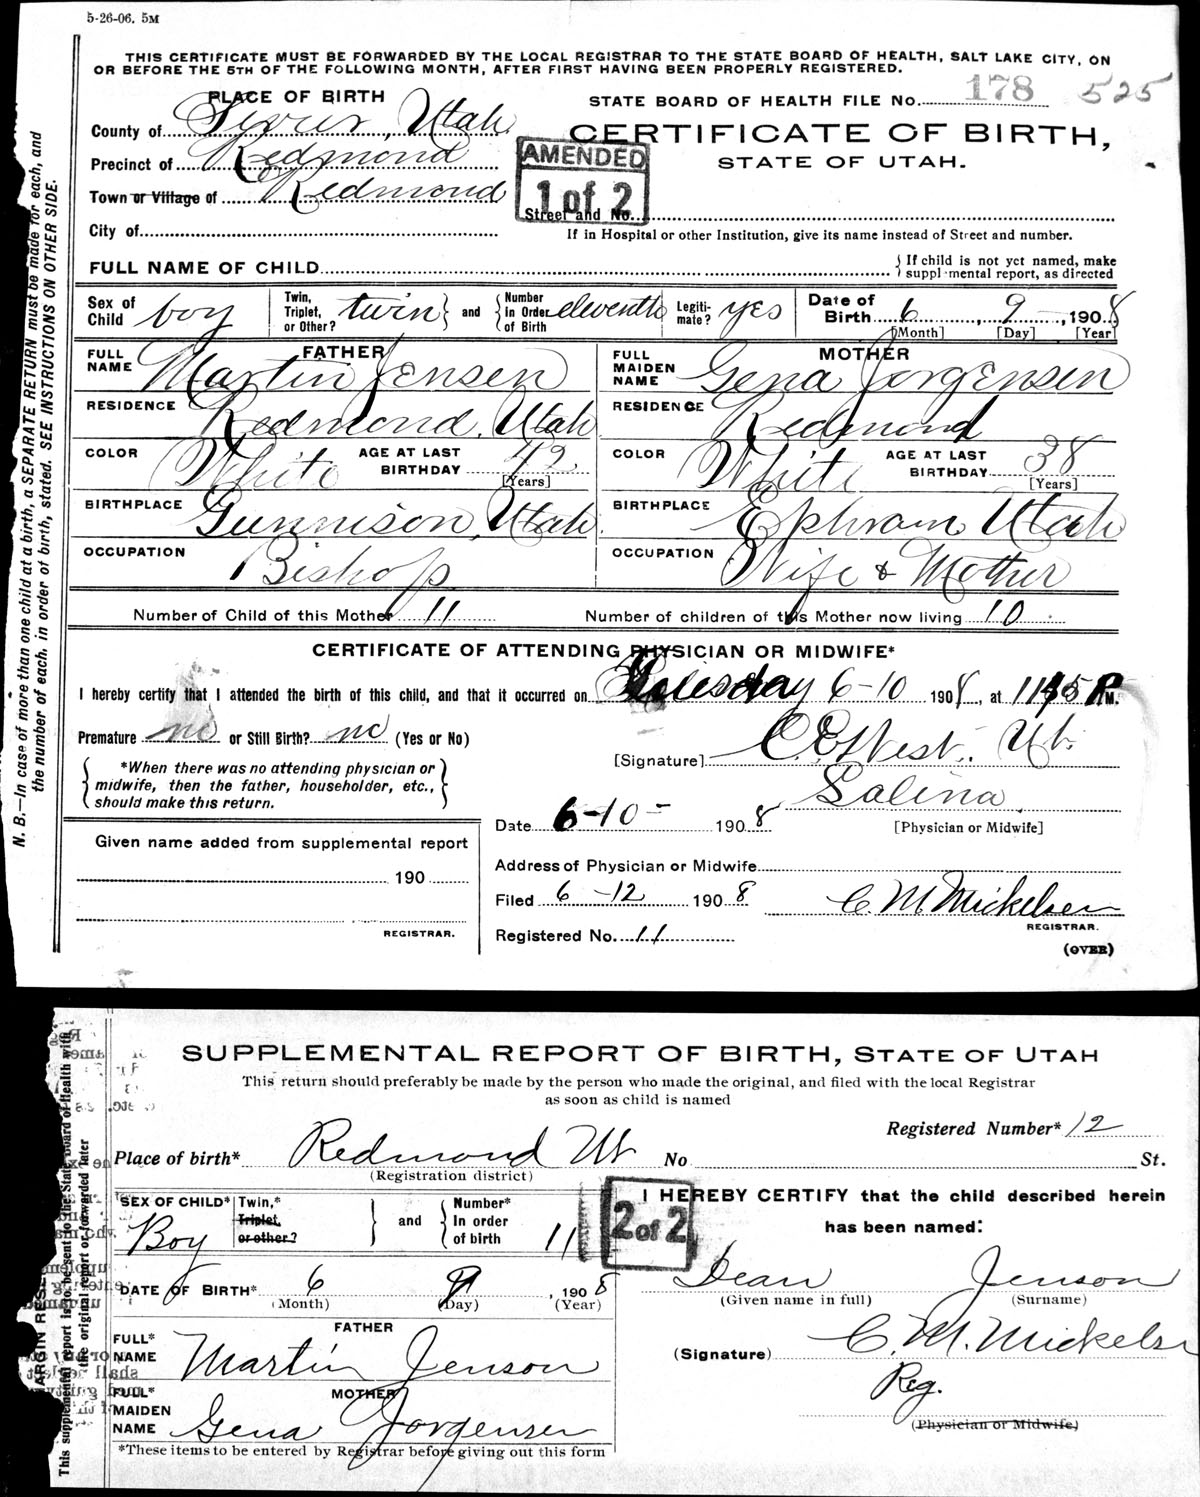 5-26-06. 5M
THIS CERTIFICATE MUST BE FORWARDED BY THE LOCAL REGISTRAR TO THE STATE BOARD OF HEALTH, SALT LAKE CITY, ON
OR BEFORE THE 5TH OF THE FOLLOWING MONTH, AFTER FIRST HAVING BEEN PROPERLY REGISTERED.
PLACE OF BIRTH
STATE BOARD OF HEALTH FILE No. 178 525
County of Sevier, Utah
CERTIFICATE OF BIRTH,
Precinct of Redmond
AMENDED
STATE OF UTAH.
Town or Village of Redmond
1 of 2
Street and No.
City of
If in Hospital or other Institution, give its name instead of Street and number.
FULL NAME OF CHILD
If child is not yet named, make
supplemental report, as directed
Sex of Child boy
Twin, Triplet, or Other? twin and Number in Order of Birth eleventh
Legitimate? yes
Date of Birth 6, 9, 1908
[Month] [Day] [Year]
FATHER
FULL NAME Martin Jensen
RESIDENCE Redmond, Utah
COLOR White AGE AT LAST BIRTHDAY 42
[Years]
BIRTHPLACE Gunnison, Utah
OCCUPATION Bishop
MOTHER
FULL MAIDEN NAME Gena Jorgensen
RESIDENCE Redmond
COLOR White AGE AT LAST BIRTHDAY 38
[Years]
BIRTHPLACE Ephram Utah
OCCUPATION Wife & Mother
Number of Child of this Mother 11
Number of children of this Mother now living 10
CERTIFICATE OF ATTENDING PHYSICIAN OR MIDWIFE*
I hereby certify that I attended the birth of this child, and that it occurred on 6-10 1908, at P M.
Premature no or Still Birth? no (Yes or No)
[Signature] C. E. West. Ut.
*When there was no attending physician or
midwife, then the father, householder, etc.,
should make this return.
Salina
[Physician or Midwife]
Date 6-10- 1908
Given name added from supplemental report
190
REGISTRAR.
Address of Physician or Midwife
Filed 6-12 1908
C. M. Mickelsen
REGISTRAR.
Registered No. 11
(OVER)
N. B.—In case of more than one child at a birth, a SEPARATE RETURN must be made for each, and
the number of each, in order of birth, stated. SEE INSTRUCTIONS ON OTHER SIDE.
SUPPLEMENTAL REPORT OF BIRTH, STATE OF UTAH
This return should preferably be made by the person who made the original, and filed with the local Registrar
as soon as child is named
Registered Number* 12
Place of birth* Redmond Ut No St.
(Registration district)
SEX OF CHILD* Boy
Twin,* Triplet, or other? and Number* in order of birth 11
2 of 2
I HEREBY CERTIFY that the child described herein
has been named:
DATE OF BIRTH* 6 9, 1908
(Month) (Day) (Year)
Dean Jenson
(Given name in full) (Surname)
FATHER
FULL* NAME Martin Jenson
(Signature) C. M. Mickels
Reg.
(Physician or Midwife)
MOTHER
FULL* MAIDEN NAME Gena Jorgensen
*These items to be entered by Registrar before giving out this form
This supplemental report is to be sent to the State Board of Health with
the original report or forwarded later